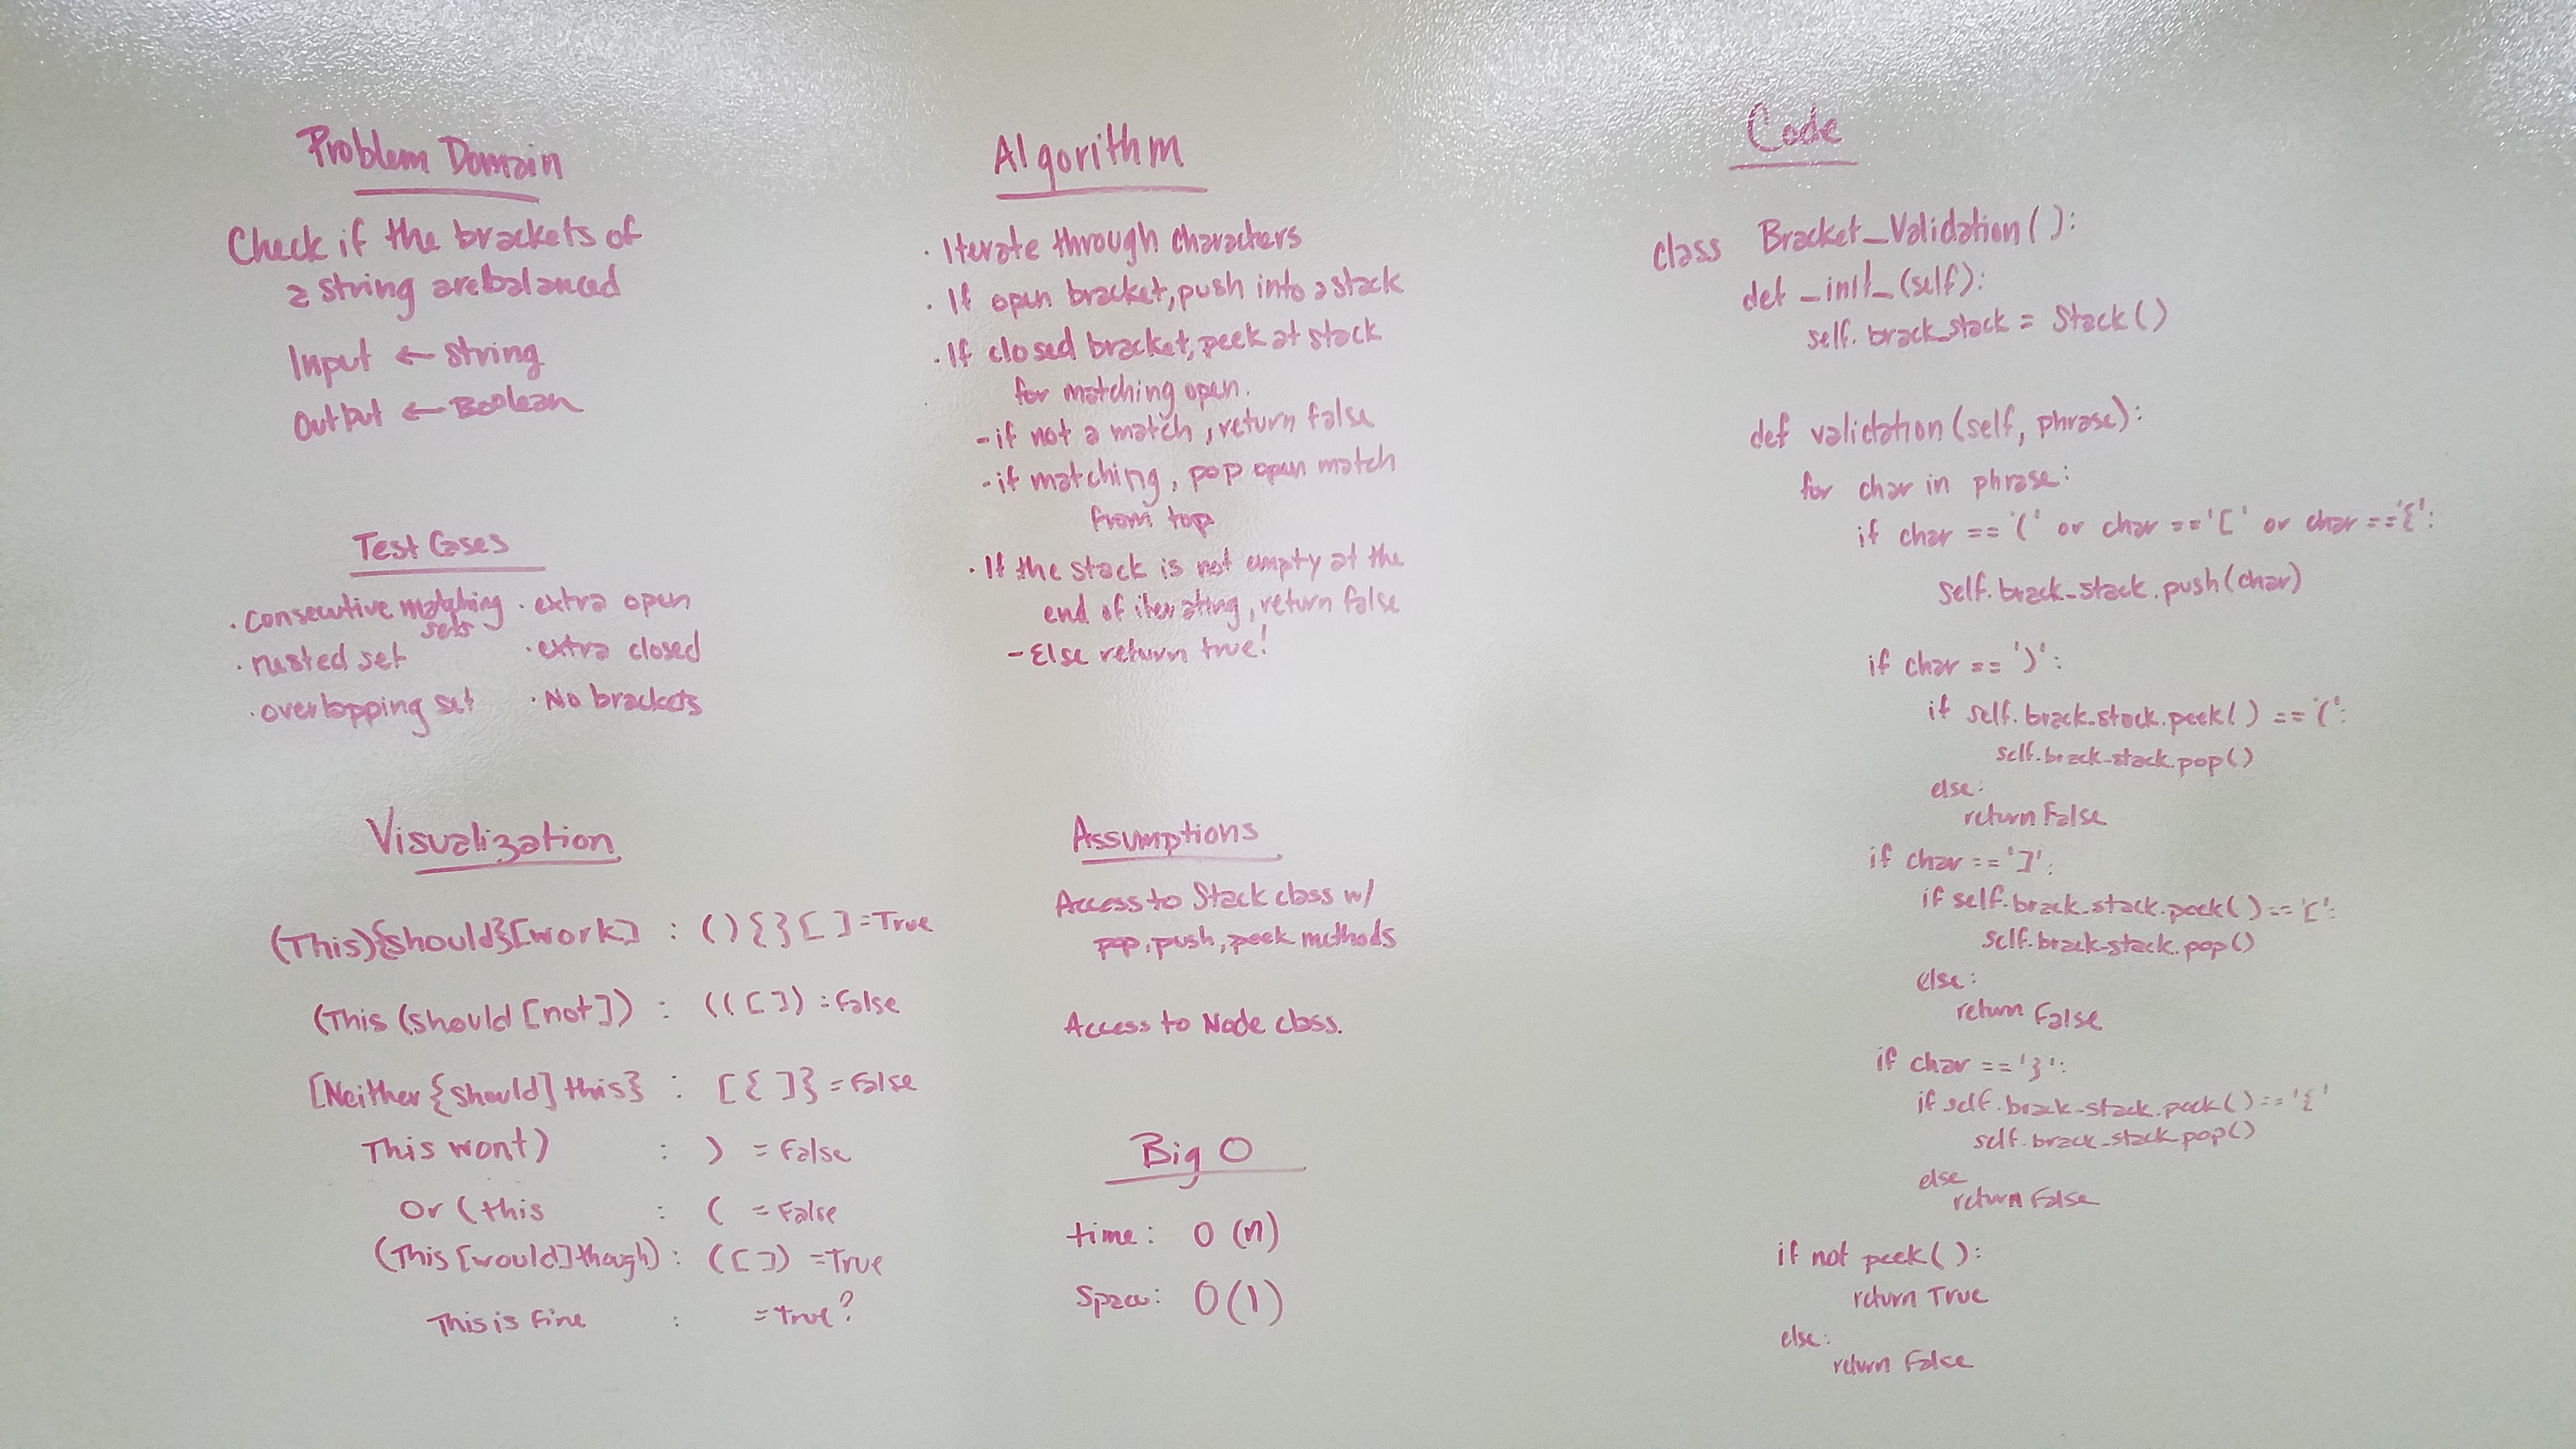 Problem Domain
Check if the brackets of
a string are balanced
Input ← string
Output ← Boolean
Test Cases
· consecutive matching sets
· nested set
· overlapping set
· extra open
· extra closed
· No brackets
Visualization
(This){should}[work] : (){}[] = True
(This (should [not]) : (([]) = False
[Neither {should] this} : [{]} = False
This wont) : ) = False
Or (this : ( = False
(This [would] though) : ([]) = True
This is fine : = true?
Algorithm
· Iterate through characters
· If open bracket, push into a stack
· If closed bracket, peek at stack
for matching open.
- if not a match, return false
- if matching, pop open match
from top
· If the stack is not empty at the
end of iterating, return false
- Else return true!
Assumptions
Access to Stack class w/
pop, push, peek methods
Access to Node class.
Big O
time: O(n)
Space: O(1)
Code
class Bracket_Validation():
def _init_(self):
self.brack_stack = Stack()
def validation(self, phrase):
for char in phrase:
if char == '(' or char == '[' or char == '{':
self.brack_stack.push(char)
if char == ')':
if self.brack_stack.peek() == '(':
self.brack_stack.pop()
else:
return False
if char == ']':
if self.brack_stack.peek() == '[':
self.brack_stack.pop()
else:
return False
if char == '}':
if self.brack_stack.peek() == '{'
self.brack_stack.pop()
else
return False
if not peek():
return True
else:
return False